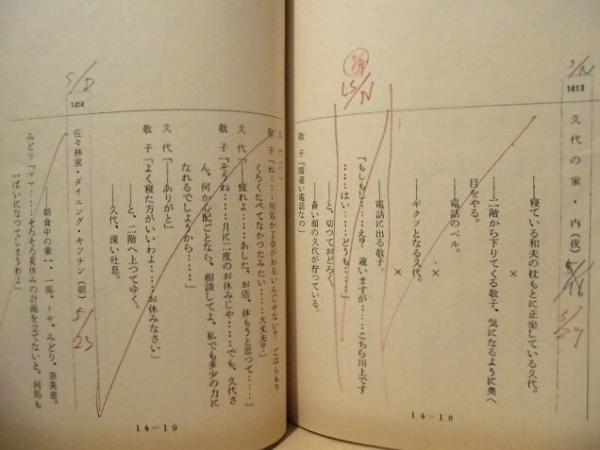 S/N
1413
久代の家・内(夜)
5/16
5/29
――寝ている和夫の枕もとに正坐している久代。
×
――二階から下りてくる敬子、気になるように奥へ
目をやる。
――電話のベル。
×
――ギクッとなる久代。
×
――電話に出る敬子。
「もしもし……え?違いますが……こちら川上です
……はい……どうも……」
――と、切っておどろく。
――青い顔の久代が佇っている。
敬子「間違い電話なの」
LS/N
14－18
敬子「ね
くろくたべてなかったみたい……大丈夫?」
久代「……疲れよ……あした、お店、休もうと思って……」
敬子「そうね……月に二度のお休みじゃ……でも、久代さ
ん、何か心配ごとなら、相談してよ、私でも多少の力に
なれるでしょうから……」
久代「――ありがと」
敬子「よく寝た方がいいわよ……お休みなさい」
――と、二階へ上ってゆく。
――久代、深い吐息。
S/D
1414
佐々林家・ダイニング・キッチン(朝)
5/23
――朝食中の兼一、一馬、トキ、みどり、奈美恵。
みどり「ママ……そろそろ夏休みの計画を立てないと、何処も
一ぱいになってしまうわよ」
14－19